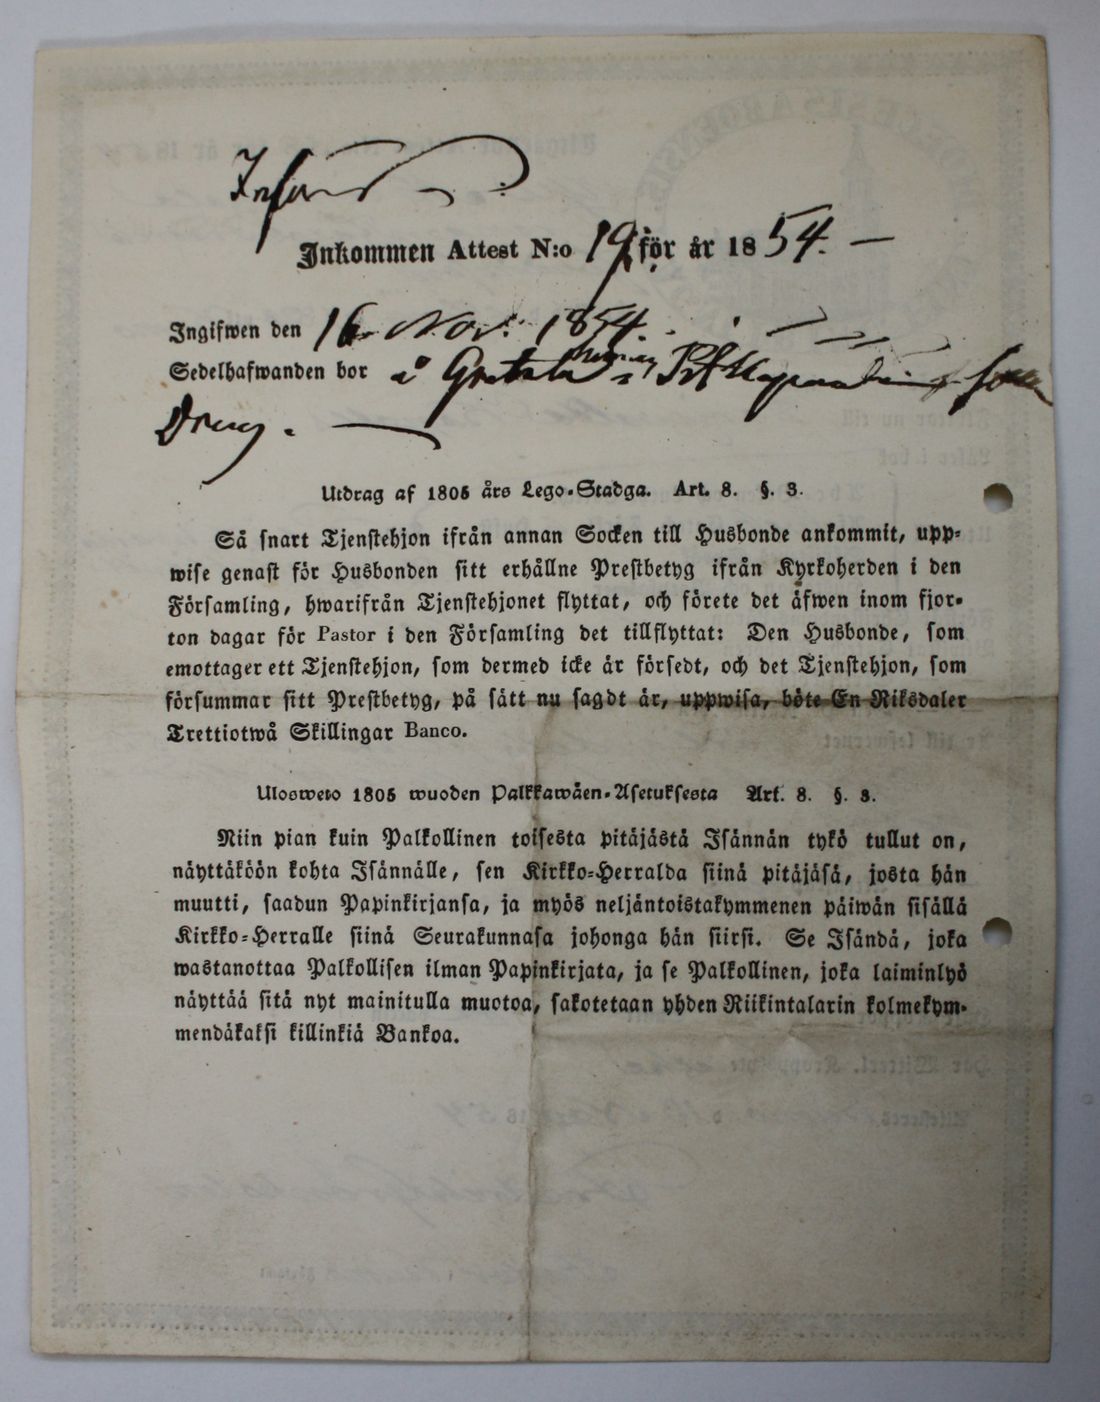 Införd
Inkommen Attest N:o 19 för år 1854. —
Ingifwen den 16 Nov. 1854.
Sedelhafwanden bor i
Dräng. —
Utdrag af 1805 års Lego-Stadga. Art. 8. §. 3.
Så snart Tjenstehjon ifrån annan Socken till Husbonde ankommit, upp-
wise genast för Husbonden sitt erhållne Prestbetyg ifrån Kyrkoherden i den
Församling, hwarifrån Tjenstehjonet flyttat, och förete det äfwen inom fjor-
ton dagar för Pastor i den Församling det tillflyttat: Den Husbonde, som
emottager ett Tjenstehjon, som dermed icke är försedt, och det Tjenstehjon, som
försummar sitt Prestbetyg, på sätt nu sagdt är, uppwisa, böte En Riksdaler
Trettiotwå Skillingar Banco.
Ulosweto 1805 wuoden Palkkawäen-Asetuksesta Art. 8. §. 3.
Niin pian kuin Palkollinen toisesta pitäjästä Isännän tykö tullut on,
näyttäköön kohta Isännälle, sen Kirkko-Herralda siinä pitäjäsä, josta hän
muutti, saadun Papinkirjansa, ja myös neljäntoistakymmenen päiwän sisällä
Kirkko-Herralle siinä Seurakunnasa johonga hän siirsi. Se Isändä, joka
wastanottaa Palkollisen ilman Papinkirjata, ja se Palkollinen, joka laiminlyö
näyttää sitä nyt mainitulla muotoa, sakotetaan yhden Riikintalarin kolmekym-
mendäkaksi killinkiä Bankoa.